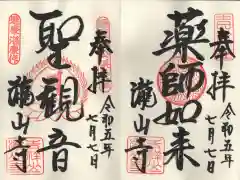 奉拝
薬師如来
瀧山寺
令和五年
七月七日
奉拝
聖観音
瀧山寺
令和五年
七月七日